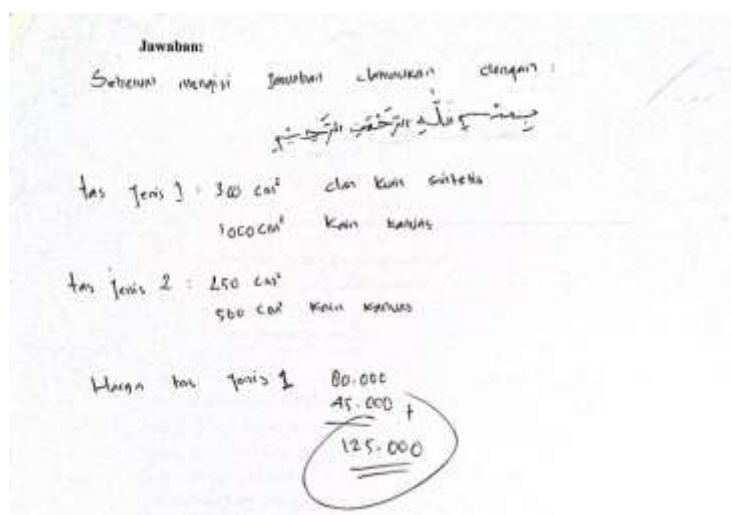 Jawaban:
Sebelum mengisi Jawaban dengan :
بِسْمِ اللّٰهِ الرَّحْمٰنِ الرَّحِيْمِ
tas Jenis 1 : 300 cm² dan kulit sintetis
1000 cm² kain kanvas
tas Jenis 2 : 250 cm²
500 cm² kain kanvas
Harga tas Jenis 1 80.000
45.000 +
125.000